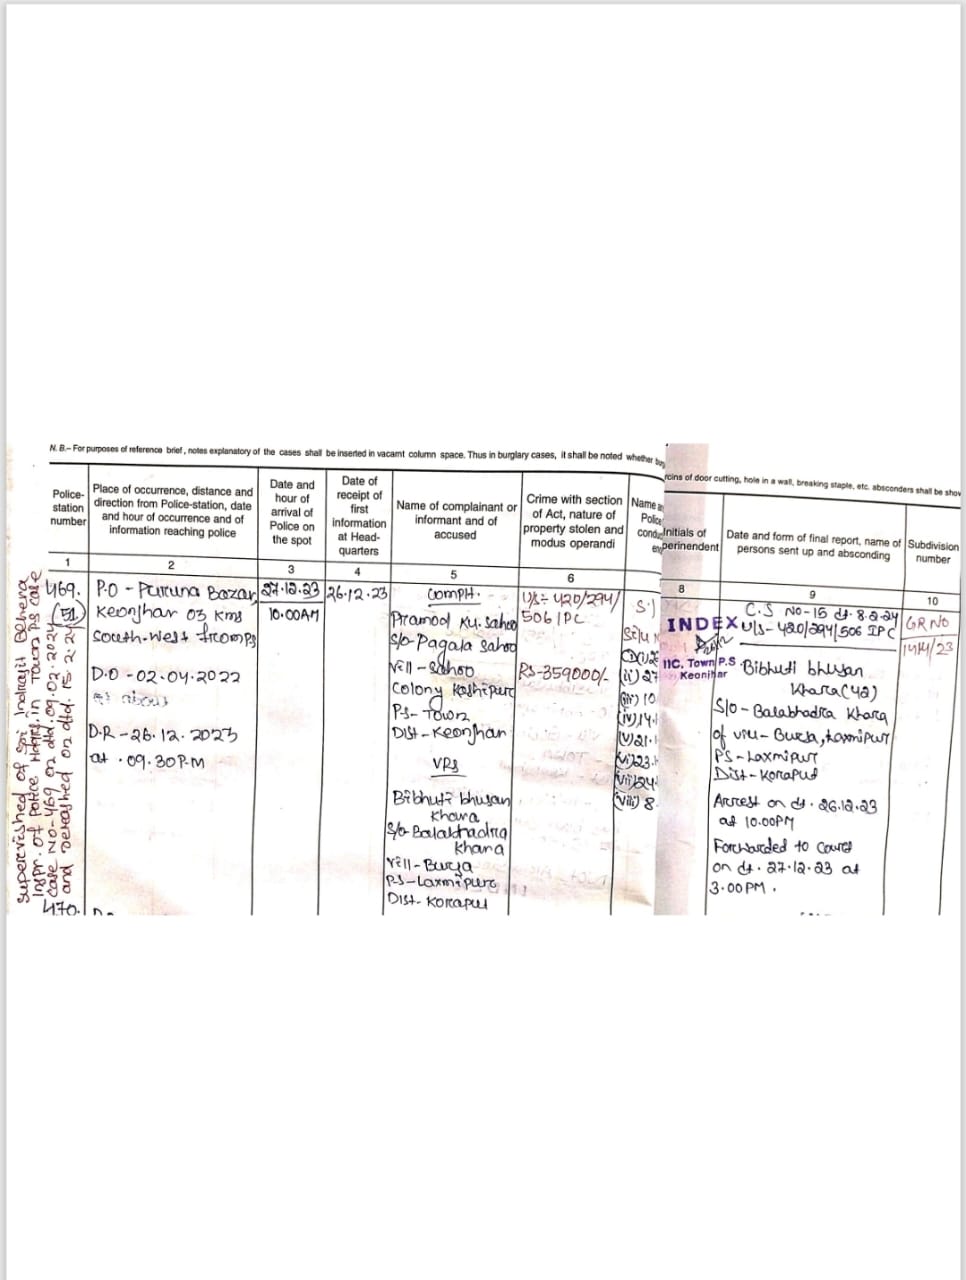 N. B.– For purposes of reference brief, notes explanatory of the cases shall be inserted in vacamt column space. Thus in burglary cases, it shall be noted whether
door cutting, hole in a wall, breaking staple, etc. absconders shall be
Police-station number
Place of occurrence, distance and direction from Police-station, date and hour of occurrence and of information reaching police
Date and hour of arrival of Police on the spot
Date of receipt of first information at Head-quarters
Name of complainant or informant and of accused
Crime with section of Act, nature of property stolen and modus operandi
Name
Police
Initials of
Date and form of final report, name of persons sent up and absconding
Subdivision number
1
2
3
4
5
6
8
9
10
469.
(51)
P.O - Puruna Bazar,
Keonjhar 03 Kms
South-West from PS
D.O - 02.04.2022
D.R - 26.12.2023
at . 09.30 P.M
27.12.23
10.00AM
26.12.23
Compt.
Pramod Ku. Sahoo
S/o- Pagala Sahoo
Vill - Sahoo
Colony Kashipur
PS- Town
Dist - Keonjhan
VRS
Bibhuti bhusan
Khara
S/o- Balabhadra
Khara
Vill- Burja
PS- Laxmipur
Dist- Koraput
U/s - 420/294/
506 IPC
RS-359000/-
(ii) 27
(iii) 10
(iv) 14.
(v) 21.
(vi) 23.
(vii) 24
(viii) 8
INDEX
IIC. Town P.S
Keonjhar
C.S No-15 dt. 8.2.24
U/s- 420/294/506 IPC
Bibhuti bhusan
Khara (42)
S/o- Balabhadra Khara
of vill- Burja, Laxmipur
PS- Laxmipur
Dist- Koraput
Arrest on dt. 26.12.23
at 10.00PM
Forwarded to Court
on dt. 27.12.23 at
3.00 PM.
GR NO
1414/23
470.
Supervished of Sri Indrajit Behera
Inspr. of Police Hdqrs. in Town PS case
case No-469 on dtd. 09.02.2024
and on dtd. 15.2.24